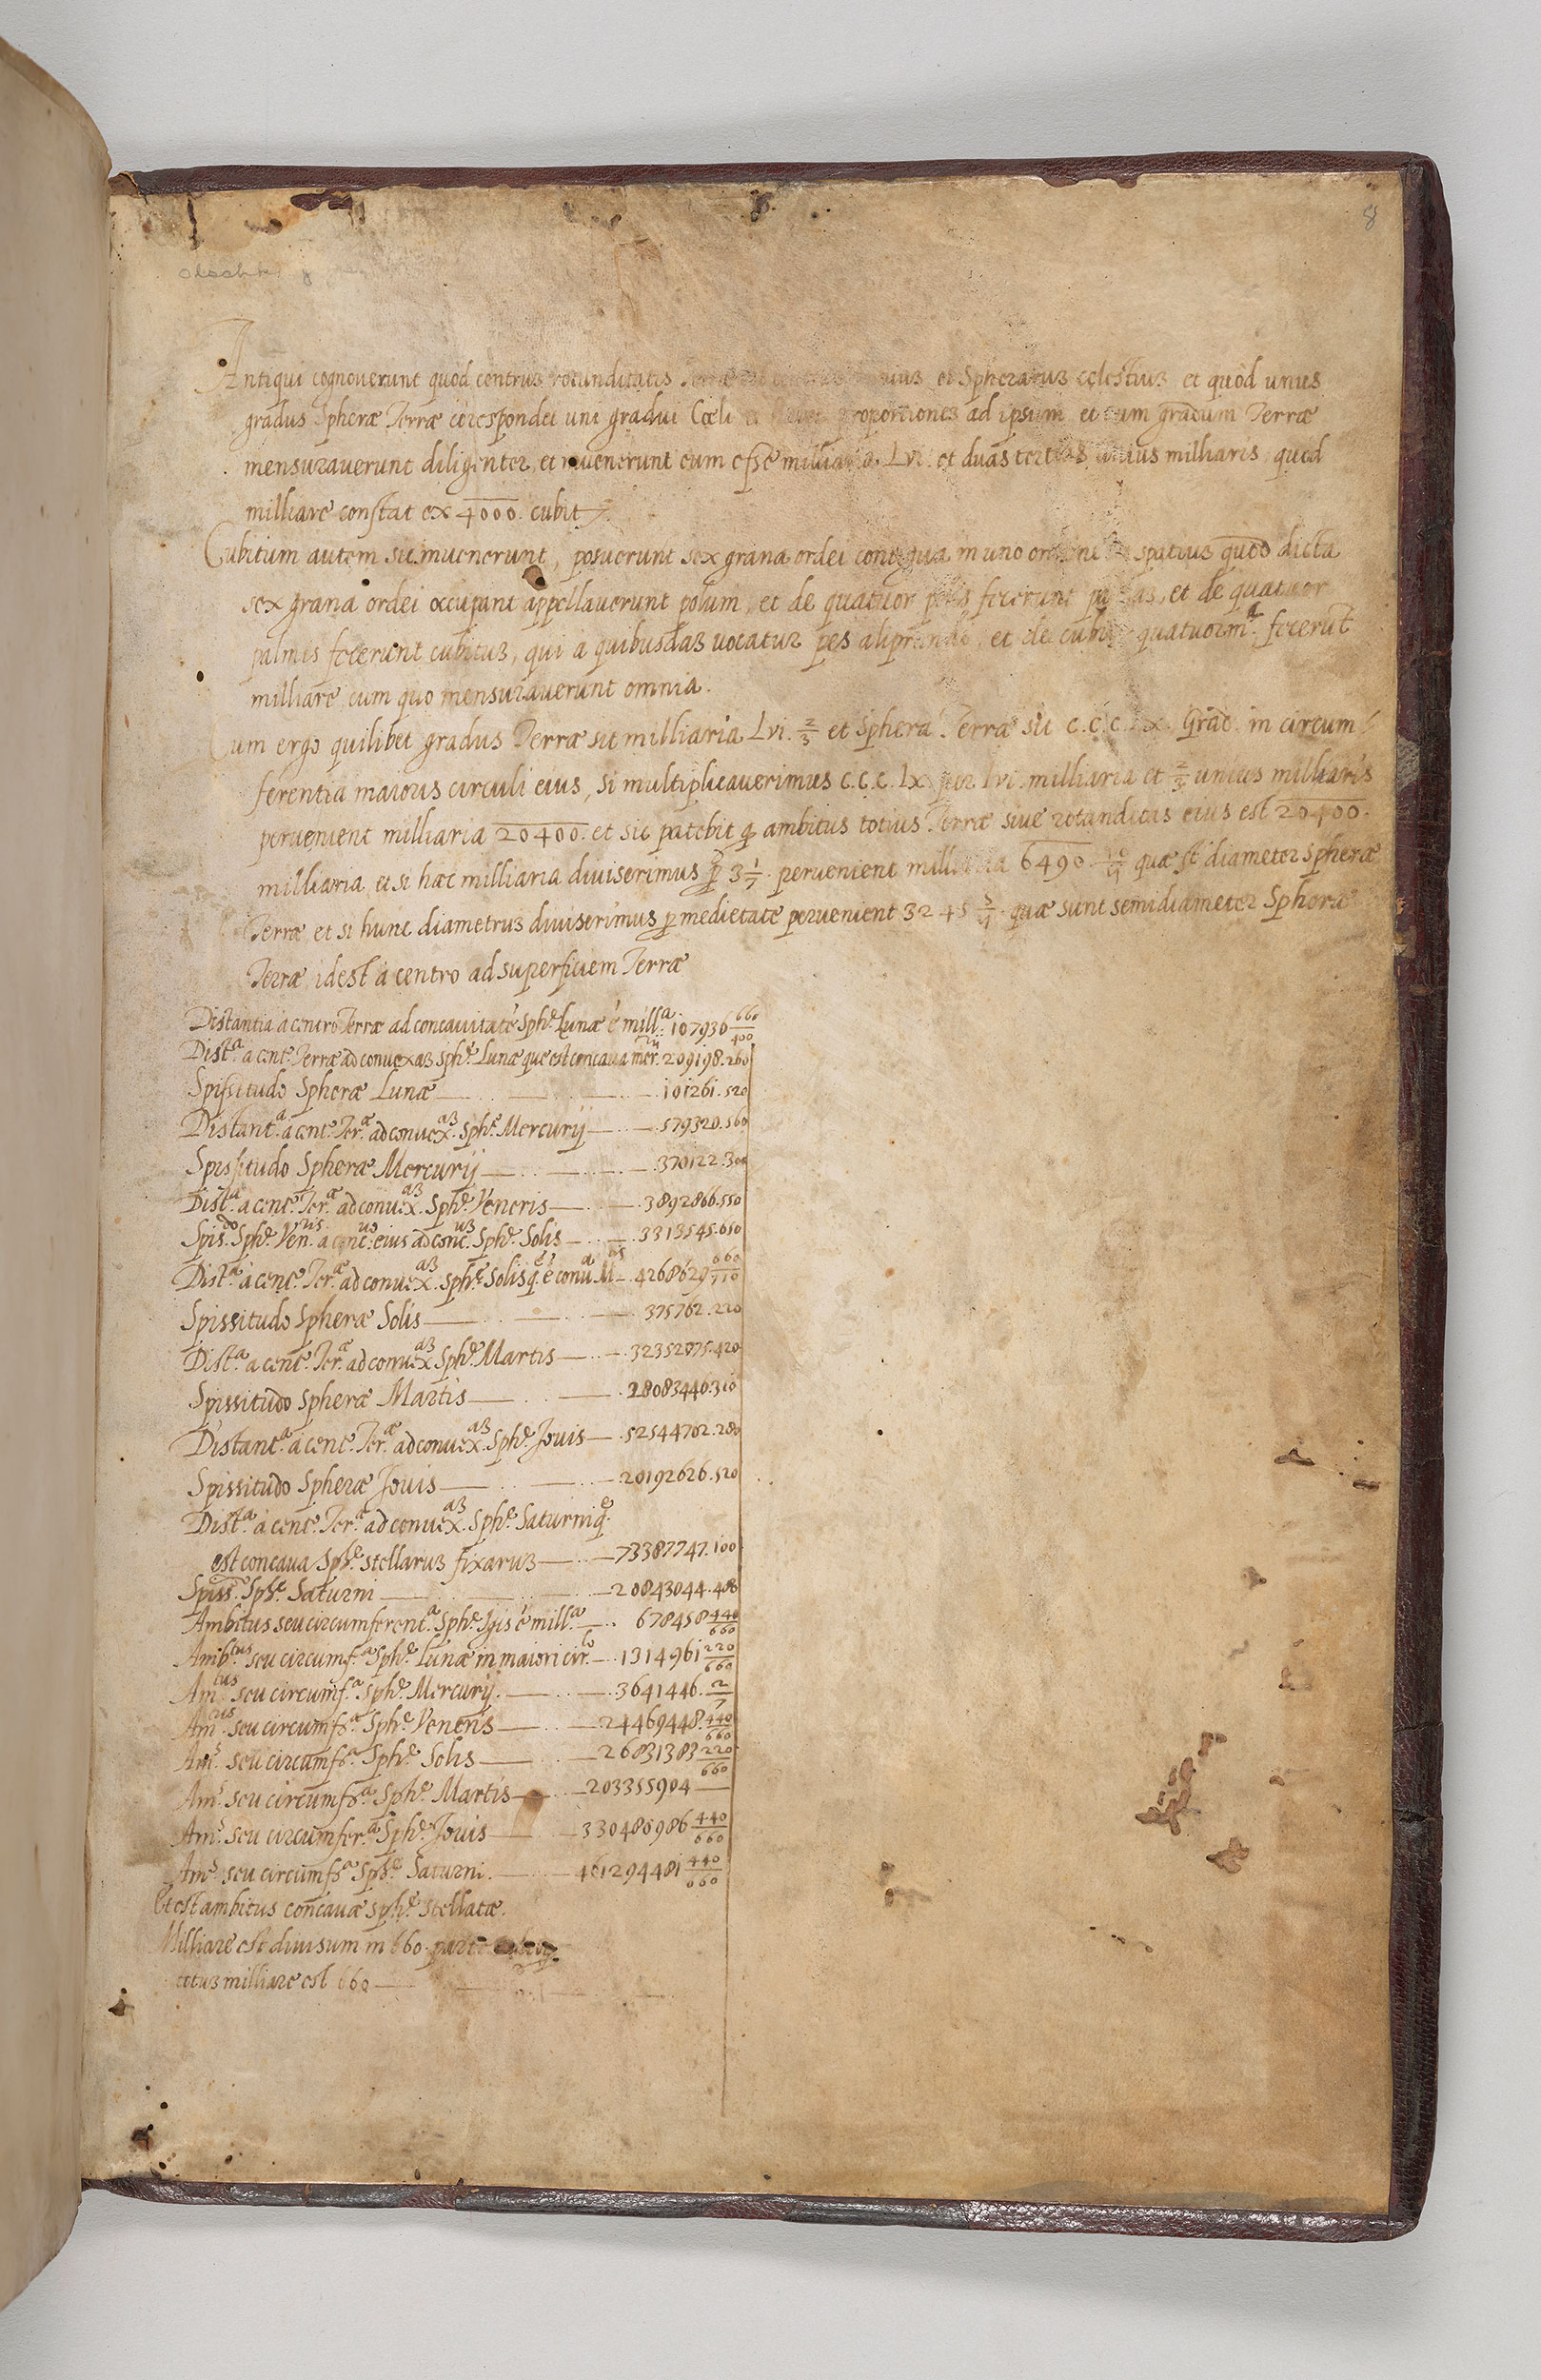 8
Antiqui cognouerunt quòd centrum rotunditatis et Spherarum cęlestium et quòd unus
gradus Spheræ Terræ correspondet uni gradui Cœli proportionem ad ipsum et cum gradum Terræ
mensurauerunt diligenter, et inuenerunt eum esse milliaria Lvi. et duas tertias unius milliaris, quod
milliare constat ex 4000. cubitis
Cubitum autem sic inuenerunt, posuerunt sex grana ordei contigua in uno ordine spatium quod dicta
sex grana ordei occupant appellauerunt polum, et de quatuor polis fecerunt et de quatuor
palmis fecerunt cubitum, qui a quibusdam vocatur pes aliprandi, et de cubitis quatuor m.ᵃ fecerũt
milliare, cum quo mensurauerunt omnia.
Cum ergo quilibet gradus Terræ sit milliaria Lvi. 2/3 et Sphera Terræ sit c.c.c.Lx. Grad. in circum
ferentia maioris circuli eius, si multiplicauerimus c.c.c.Lx per Lvi. milliaria et 2/3 unius milliaris
peruenient milliaria 20400. et sic patebit q ambitus totius Terræ siue rotunditas eius est 20400.
milliaria, et si hæc milliaria diuiserimus p 3 1/7. peruenient milliaria 6490 10/11 quæ st diameter Spheræ
Terræ et si hunc diametrum diuiserimus p medietate peruenient 3245 5/11. quæ sunt semidiameter Spheræ
Terræ, idest à centro ad superficiem Terræ
Distantia à centro Terræ ad concauitatẽ Sphẹ. Lunæ è mill.ᵃ 107936 660/400
Dist.ᵃ a cent. Terræ ad conuexam Sphẹ. Lunæ que est concaua mer.ʳⁱʲ 209198.260
Spissitudo Spheræ Lunæ — 101261.520
Distant.ᵃ a cent. Ter.ᵉ ad conuex.ᵃᵐ Sphẹ. Mercurij — 579320.560
Spissitudo Spheræ Mercurij — 370122.300
Dist.ᵃ a cent. Ter.ᵉ ad conuex.ᵃᵐ Sphẹ. Veneris — 3892866.550
Spis.ᵈᵒ Sphẹ. Ven.ʳⁱˢ a conc.ᵘᵒ eius ad conc.ᵘᵐ Sphẹ. Solis — 3313545.650
Dist.ᵃ à cent. Ter.ᵉ ad conuex.ᵃᵐ Sphẹ. Solis q. è conu.ᵃ M.ᵗⁱˢ — 4268629 660/110
Spissitudo Spheræ Solis — 375762.220
Dist.ᵃ a cent. Ter.ᵉ ad conuex.ᵃᵐ Sphẹ. Martis — 32352075.420
Spissitudo Spheræ Martis — 28083446.310
Distant.ᵃ à cent. Ter.ᵉ ad conuex.ᵃᵐ Sphẹ. Jouis — 52544702.280
Spissitudo Spheræ Jouis — 20192626.520
Dist.ᵃ à cent. Ter.ᵉ ad conuex.ᵃᵐ Sphẹ. Saturni q.ᵉ
est concaua Sphẹ. stellarum fixarum — 73387747.100
Spiss.ᵒ Sphẹ. Saturni — 20843044.480
Ambitus seu circumferent.ᵃ Sphẹ. Igis è mill.ᵃ — 678458 440/660
Amb.ᵗᵘˢ seu circumf.ᵃ Sphẹ. Lunæ in maiori cir.ˡᵒ — 1314961 220/660
Am.ᵗᵘˢ seu circumf.ᵃ Sphẹ. Mercurij. — 3641446. 2/7
Am.ᵗᵘˢ seu circumfẹ.ᵃ Sphẹ. Veneris — 24469448. 440/660
Am.ˢ seu circumfẹ.ᵃ Sphẹ. Solis — 26831383 220/660
Am.ˢ seu circumfẹ.ᵃ Sphẹ. Martis — 203355904 —
Am.ˢ seu circumfer.ᵃ Sphẹ. Jouis — 330480986 440/660
Am.ˢ seu circumfẹ.ᵃ Sphẹ. Saturni. — 461294481 440/660
Et est ambitus concauæ sphẹ. stellatæ.
Milliare est diuisum in 660. parte
totum milliare est 660 —